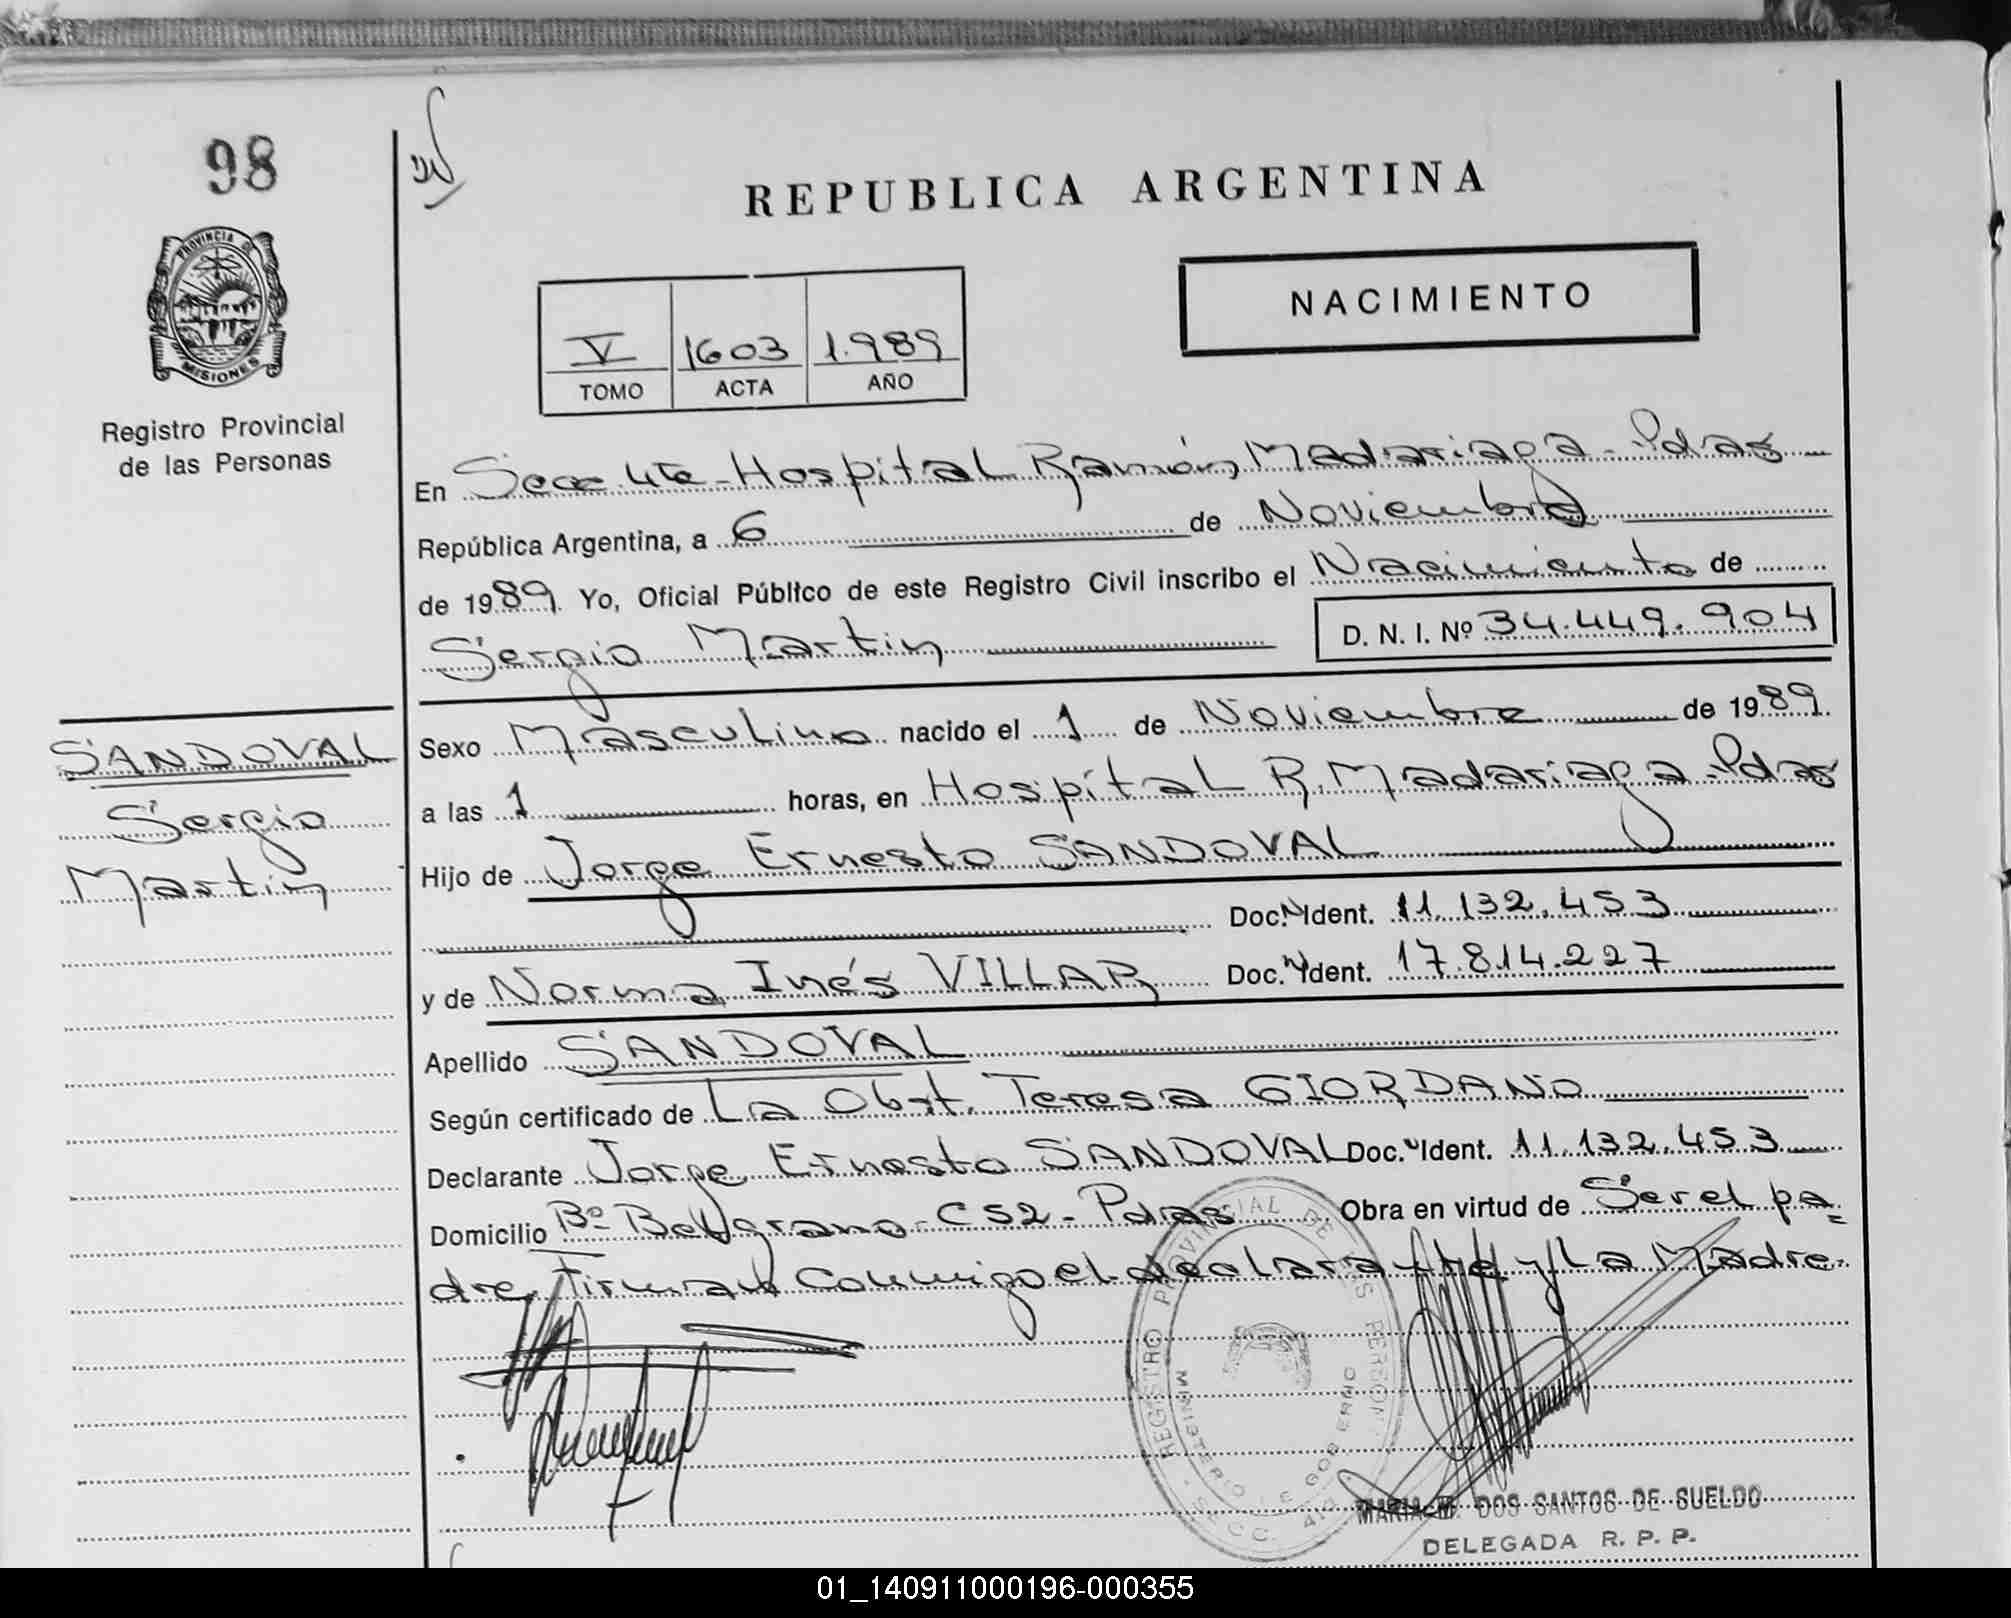 98
REPUBLICA ARGENTINA
PROVINCIA DE
MISIONES
NACIMIENTO
V 1603 1.989
TOMO ACTA AÑO
Registro Provincial
de las Personas
En Secc 4ta - Hospital Ramón Madariaga - Pdas
República Argentina, a 6 de Noviembre
de 1989. Yo, Oficial Público de este Registro Civil inscribo el Nacimiento de
Sergio Martin D. N. I. Nº 34.449.904
SANDOVAL
Sergio
Martin
Sexo Masculino nacido el 1 de Noviembre de 1989.
a las 1 horas, en Hospital R. Madariaga - Pdas
Hijo de Jorge Ernesto SANDOVAL
Doc. N Ident. 11.132.453
y de Norma Inés VILLAR Doc. N Ident. 17.814.227
Apellido SANDOVAL
Según certificado de La Obst. Teresa GIORDANO
Declarante Jorge Ernesto SANDOVAL Doc. N Ident. 11.132.453
Domicilio Bº Belgrano - C 52 - Pdas Obra en virtud de Ser el pa=
dre, Firman Conmigo el declarante y la Madre.
REGISTRO PROVINCIAL DE LAS PERSONAS
MINISTERIO DE GOBIERNO
SECC. 4ta
MARIA M. DOS SANTOS DE SUELDO
DELEGADA R. P. P.
01_140911000196-000355